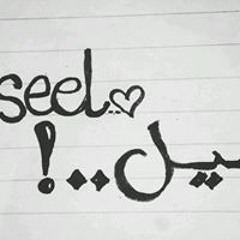 seel..♡
يل..!